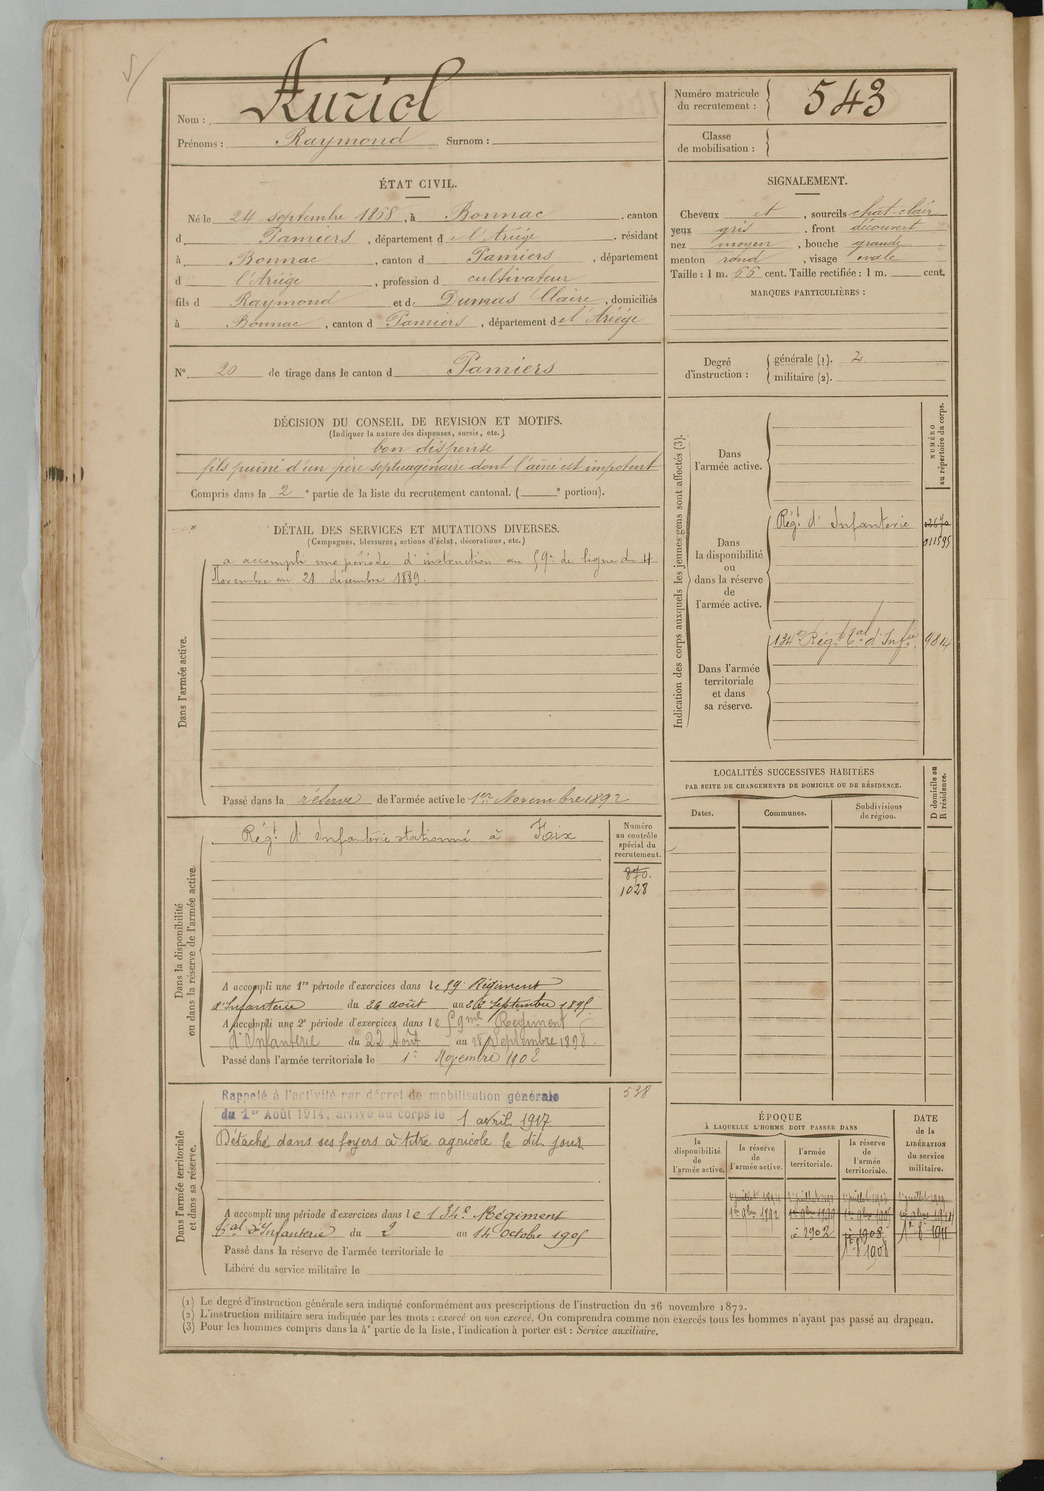 Nom : Auriol
Prénoms : Raymond Surnom :
Numéro matricule
du recrutement : 543
Classe
de mobilisation :
ÉTAT CIVIL.
Né le 24 septembre 1868, à Bonnac, canton
d Pamiers, département de l'Ariége, résidant
à Bonnac, canton d Pamiers, département
d l'Ariége, profession d cultivateur
fils d Raymond et d Dumas Claire, domiciliés
à Bonnac, canton d Pamiers, département de l'Ariége
N° 20 de tirage dans le canton d Pamiers
SIGNALEMENT.
Cheveux et, sourcils chat-clair
yeux gris, front découvert
nez moyen, bouche grande
menton rond, visage ovale
Taille : 1 m. 66 cent. Taille rectifiée : 1 m. cent.
MARQUES PARTICULIÈRES :
Degré
d'instruction :
générale (1). 2
militaire (2).
DÉCISION DU CONSEIL DE REVISION ET MOTIFS.
(Indiquer la nature des dispenses, sursis, etc.)
bon dispense
fils puiné d'un père septuagénaire dont l'aîné est impotent
Compris dans la 2e partie de la liste du recrutement cantonal. ( e portion).
DÉTAIL DES SERVICES ET MUTATIONS DIVERSES.
(Campagnes, blessures, actions d'éclat, décorations, etc.)
Dans l'armée active.
a accompli une période d'instruction au 59e de ligne du 4
Novembre au 21 décembre 1889.
Passé dans la réserve de l'armée active le 1er Novembre 1892
Dans la disponibilité
ou dans la réserve de l'armée active
Régt d'Infanterie stationné à Foix
Numéro
au contrôle
spécial du
recrutement.
870.
1028
A accompli une 1re période d'exercices dans le 59e Régiment
d'Infanterie du 26 août au 22 Septembre 1895
A accompli une 2e période d'exercices dans le 59me Régiment
d'Infanterie du 22 Août au 18 Septembre 1898.
Passé dans l'armée territoriale le 1er Novembre 1902
Dans l'armée territoriale
et dans sa réserve.
538
Rappelé à l'activité par décret de mobilisation générale
du 1er Août 1914, arrivé au corps le 1 avril 1917
Détaché dans ses foyers à titre agricole le dit jour
A accompli une période d'exercices dans le 134e Régiment
tal d'Infanterie du 2 au 14 Octobre 1905
Passé dans la réserve de l'armée territoriale le
Libéré du service militaire le
Indication des corps auxquels les jeunes gens sont affectés (3).
NUMÉRO
au répertoire du corps.
Dans
l'armée active.
Dans
la disponibilité
ou
dans la réserve
de
l'armée active.
Régt d'Infanterie
011595
Dans l'armée
territoriale
et dans
sa réserve.
134e Régt tal d'Infie 9814
LOCALITÉS SUCCESSIVES HABITÉES
PAR SUITE DE CHANGEMENTS DE DOMICILE OU DE RÉSIDENCE.
Dates. Communes. Subdivisions
de région.
D domicile ou
R résidence.
ÉPOQUE
À LAQUELLE L'HOMME DOIT PASSER DANS
la
disponibilité
de
l'armée active.
la réserve
de
l'armée active.
l'armée
territoriale.
la réserve
de
l'armée
territoriale.
DATE
de la
LIBÉRATION
du service
militaire.
1er 9bre 1892
à 1902
1908
1er 8 1908
(1) Le degré d'instruction générale sera indiqué conformément aux prescriptions de l'instruction du 26 novembre 1872.
(2) L'instruction militaire sera indiquée par les mots : exercé ou non exercé. On comprendra comme non exercés tous les hommes n'ayant pas passé au drapeau.
(3) Pour les hommes compris dans la 4e partie de la liste, l'indication à porter est : Service auxiliaire.